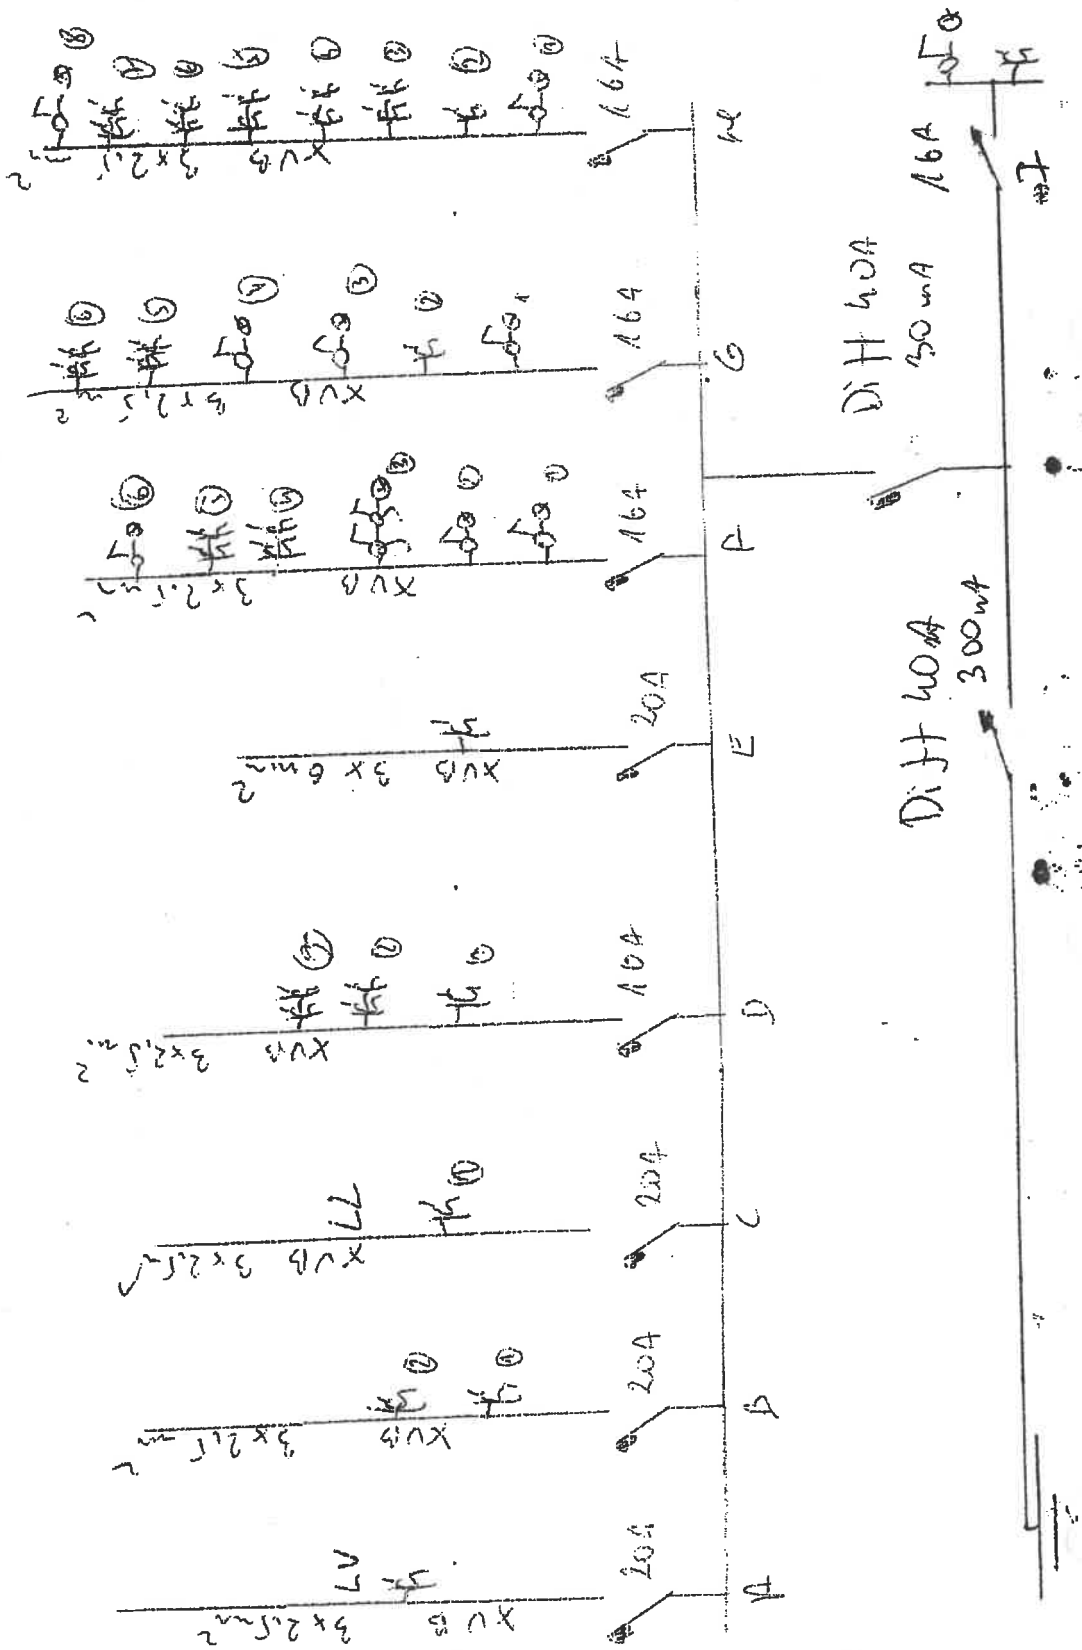 Diff 40A
300mA
Diff 40A
30mA
16A
I
A
20A
XVB 3x2,5mm²
LV
B
20A
XVB 3x2,5mm²
1
2
C
20A
XVB 3x2,5mm²
LL
1
D
16A
XVB 3x2,5mm²
1
2
3
E
20A
XVB 3x6mm²
F
16A
XVB 3x2,5mm²
1
2
3
4
5
6
G
16A
XVB 3x2,5mm²
1
2
3
4
5
6
H
16A
XVB 3x2,5mm²
1
2
3
4
5
6
7
8